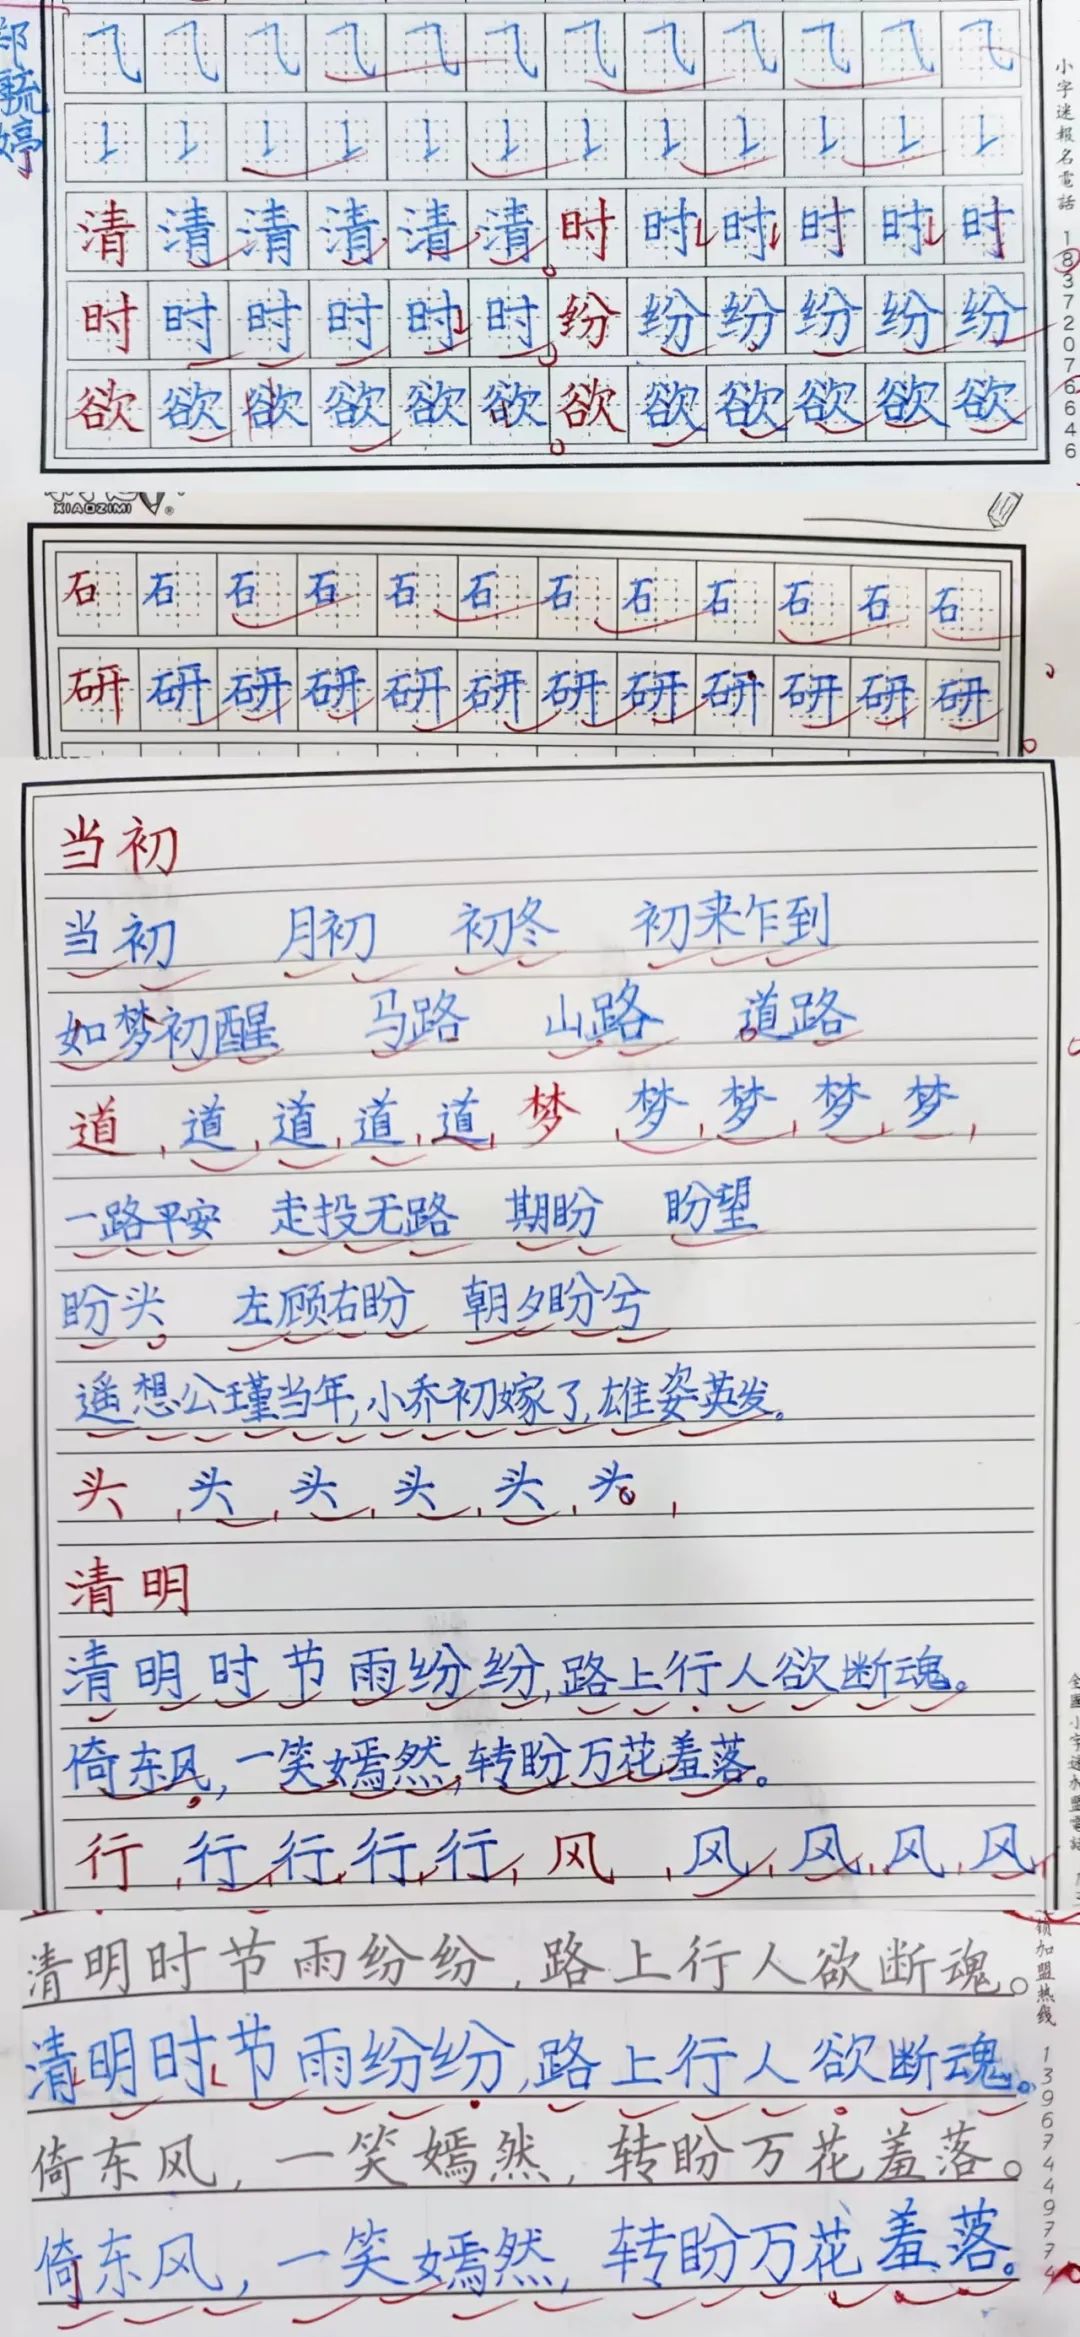 郑毓婷
乁 乁 乁 乁 乁 乁 乁 乁 乁 乁 乁 乁
清 清 清 清 清 清 时 时 时 时 时 时
时 时 时 时 时 时 纷 纷 纷 纷 纷 纷
欲 欲 欲 欲 欲 欲 欲 欲 欲 欲 欲 欲
小字迷报名電話 18372076646
XIAOZIMI ®
石 石 石 石 石 石 石 石 石 石 石 石
研 研 研 研 研 研 研 研 研 研 研 研
当初
当初 月初 初冬 初来乍到
如梦初醒 马路 山路 道路
道 道 道 道 道 梦 梦 梦 梦 梦
一路平安 走投无路 期盼 盼望
盼头 左顾右盼 朝夕盼兮
遥想公瑾当年,小乔初嫁了,雄姿英发。
头 头 头 头 头 头
清明
清明时节雨纷纷,路上行人欲断魂。
倚东风,一笑嫣然,转盼万花羞落。
行 行 行 行 行 风 风 风 风 风
全国小字迷加盟電話
清明时节雨纷纷,路上行人欲断魂。
清明时节雨纷纷,路上行人欲断魂。
倚东风,一笑嫣然,转盼万花羞落。
倚东风,一笑嫣然,转盼万花羞落。
锁加盟热线 13967449774